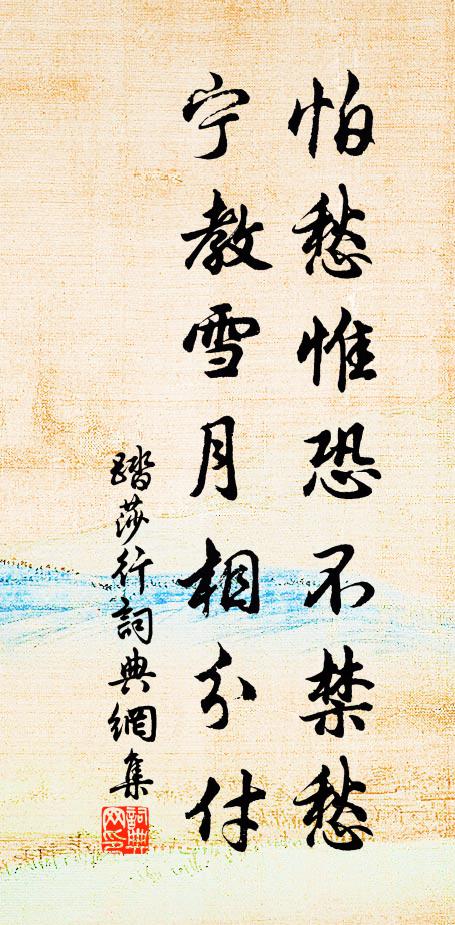 怕愁惟恐不禁愁
宁教雪月相分付
踏莎行詞典網集
詞典网印